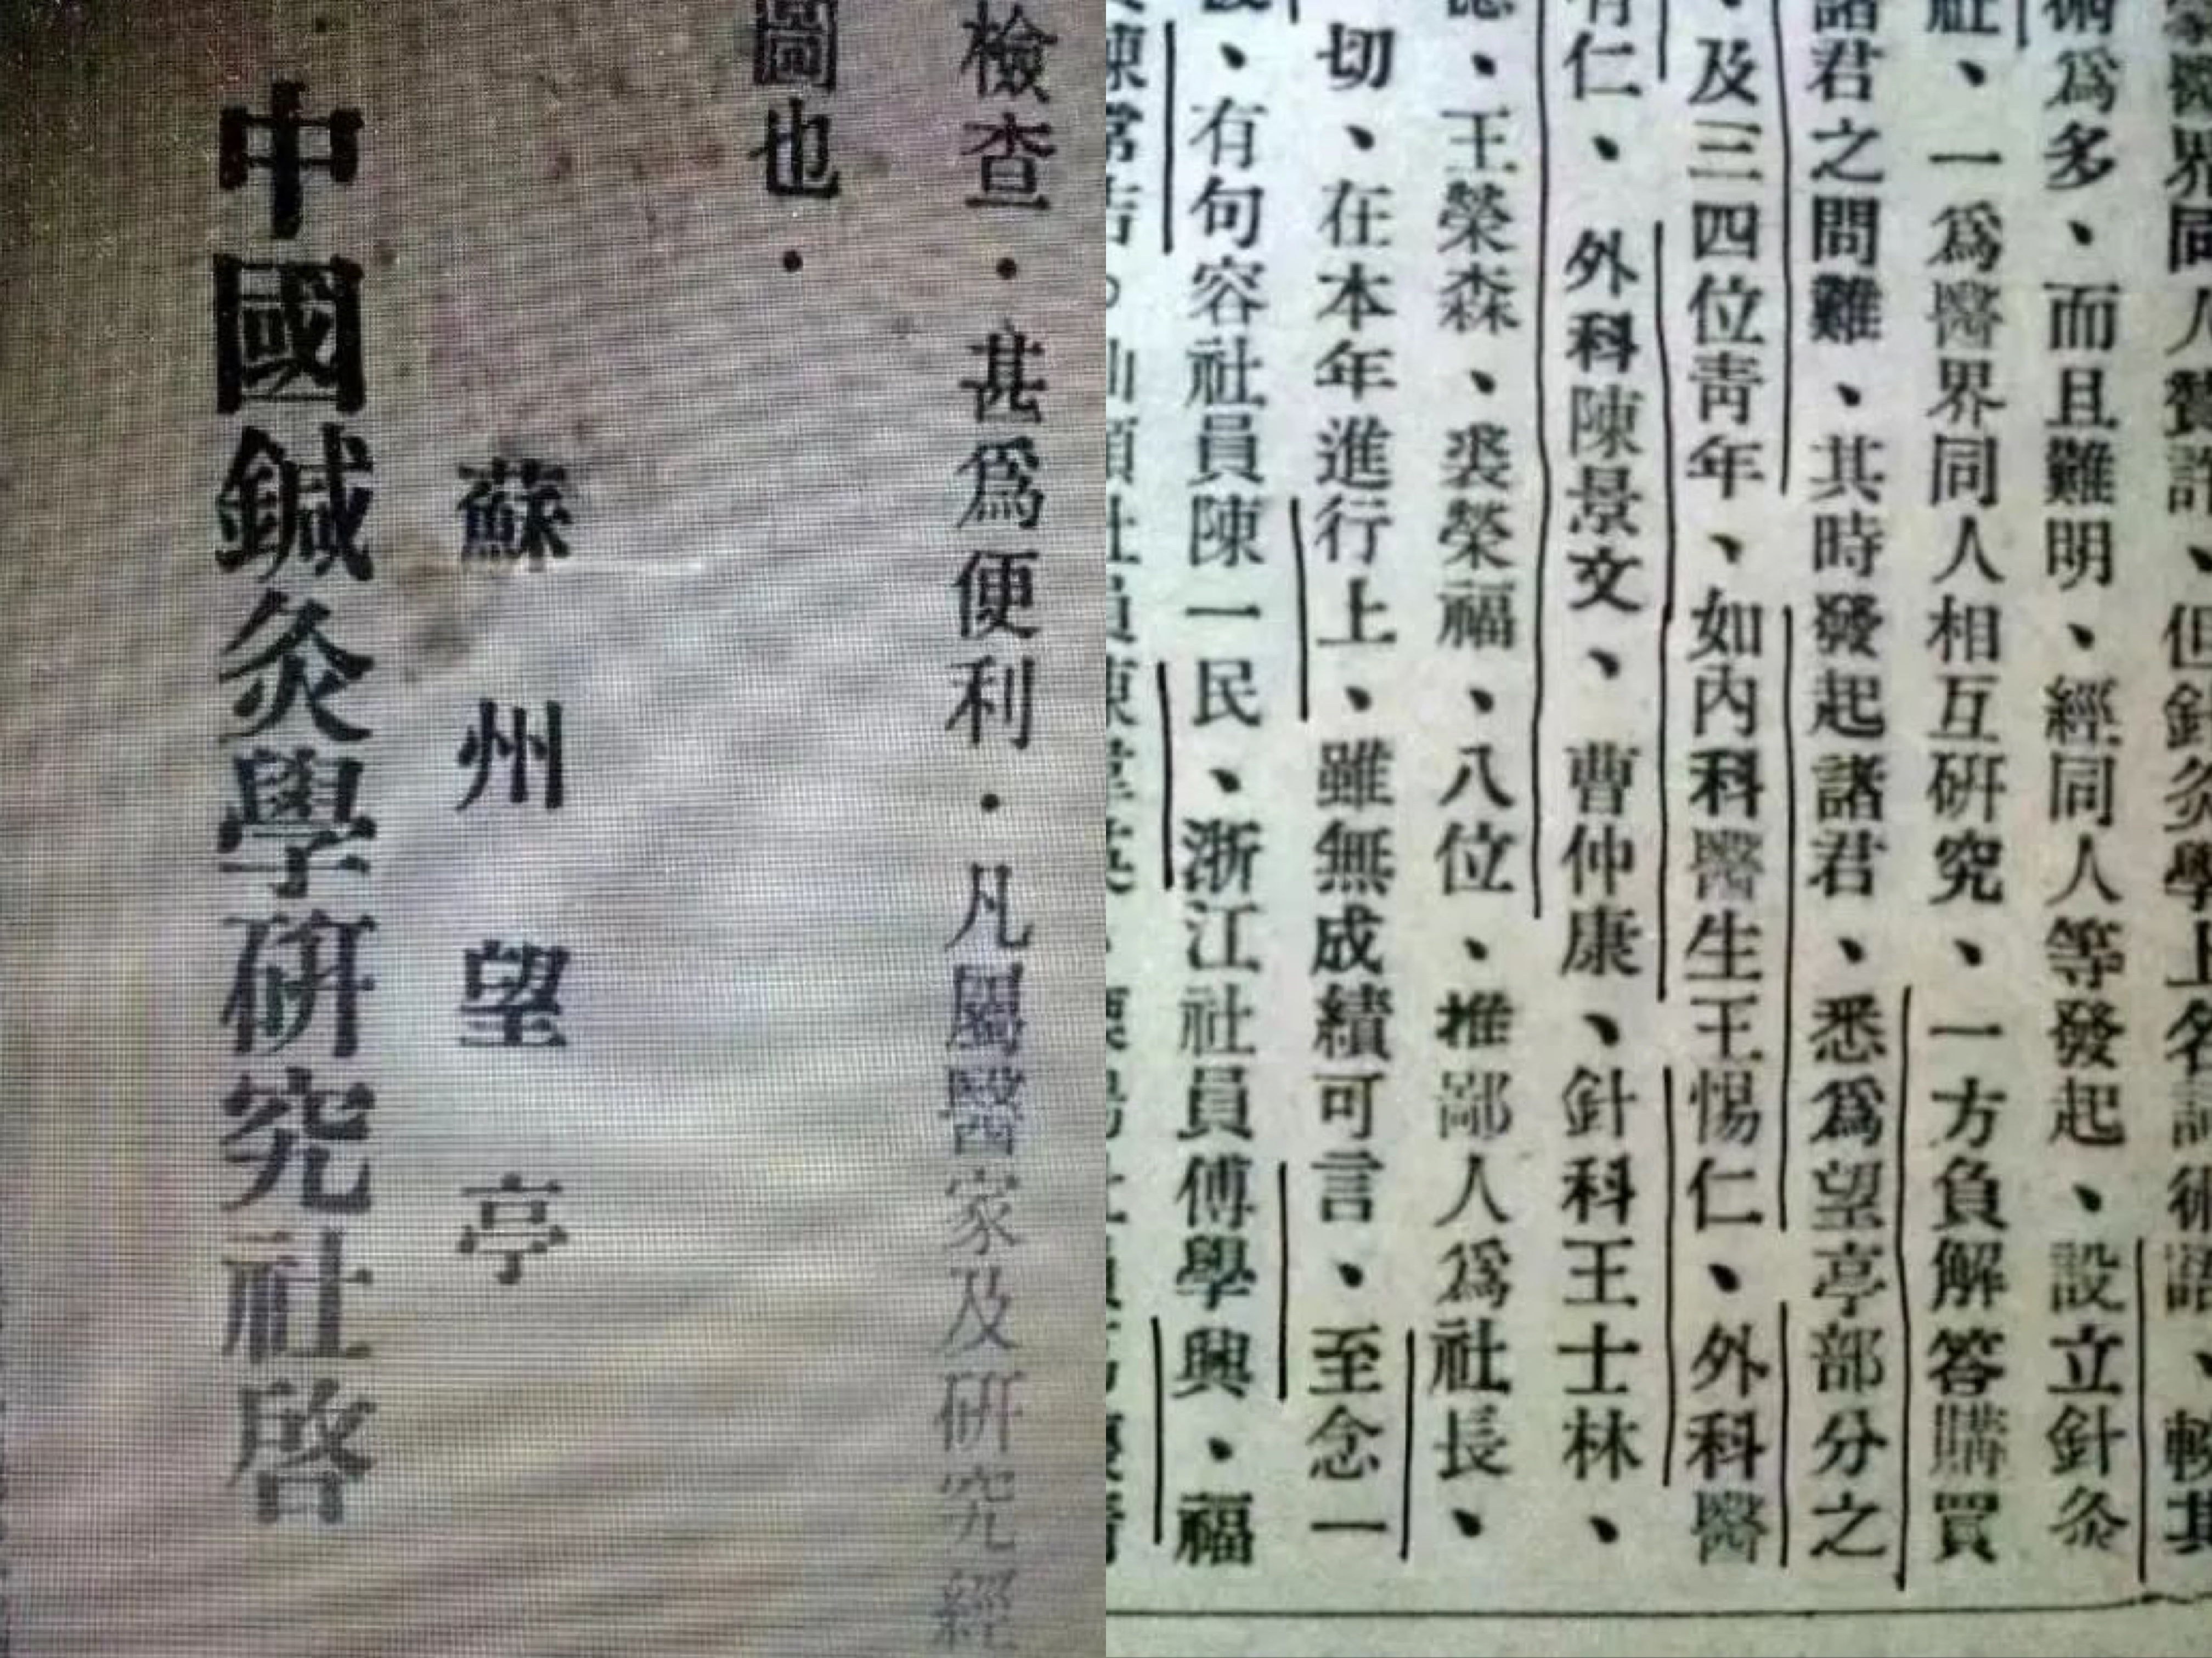 檢查．甚爲便利．凡屬醫家及研究經
圖也．
蘇州望亭
中國鍼灸學研究社啓
醫界同人贊許、但針灸學上名詞術語、較其
術爲多、而且難明、經同人等發起、設立針灸
社、一爲醫界同人相互研究、一方負解答購買
諸君之問難、其時發起諸君、悉爲望亭部分之
、及三四位靑年、如內科醫生王惕仁、外科醫
有仁、外科陳景文、曹仲康、針科王士林、
、王榮森、裘榮福、八位、推鄙人爲社長、
切、在本年進行上、雖無成績可言、至念一
、有句容社員陳一民、浙江社員傅學興、福